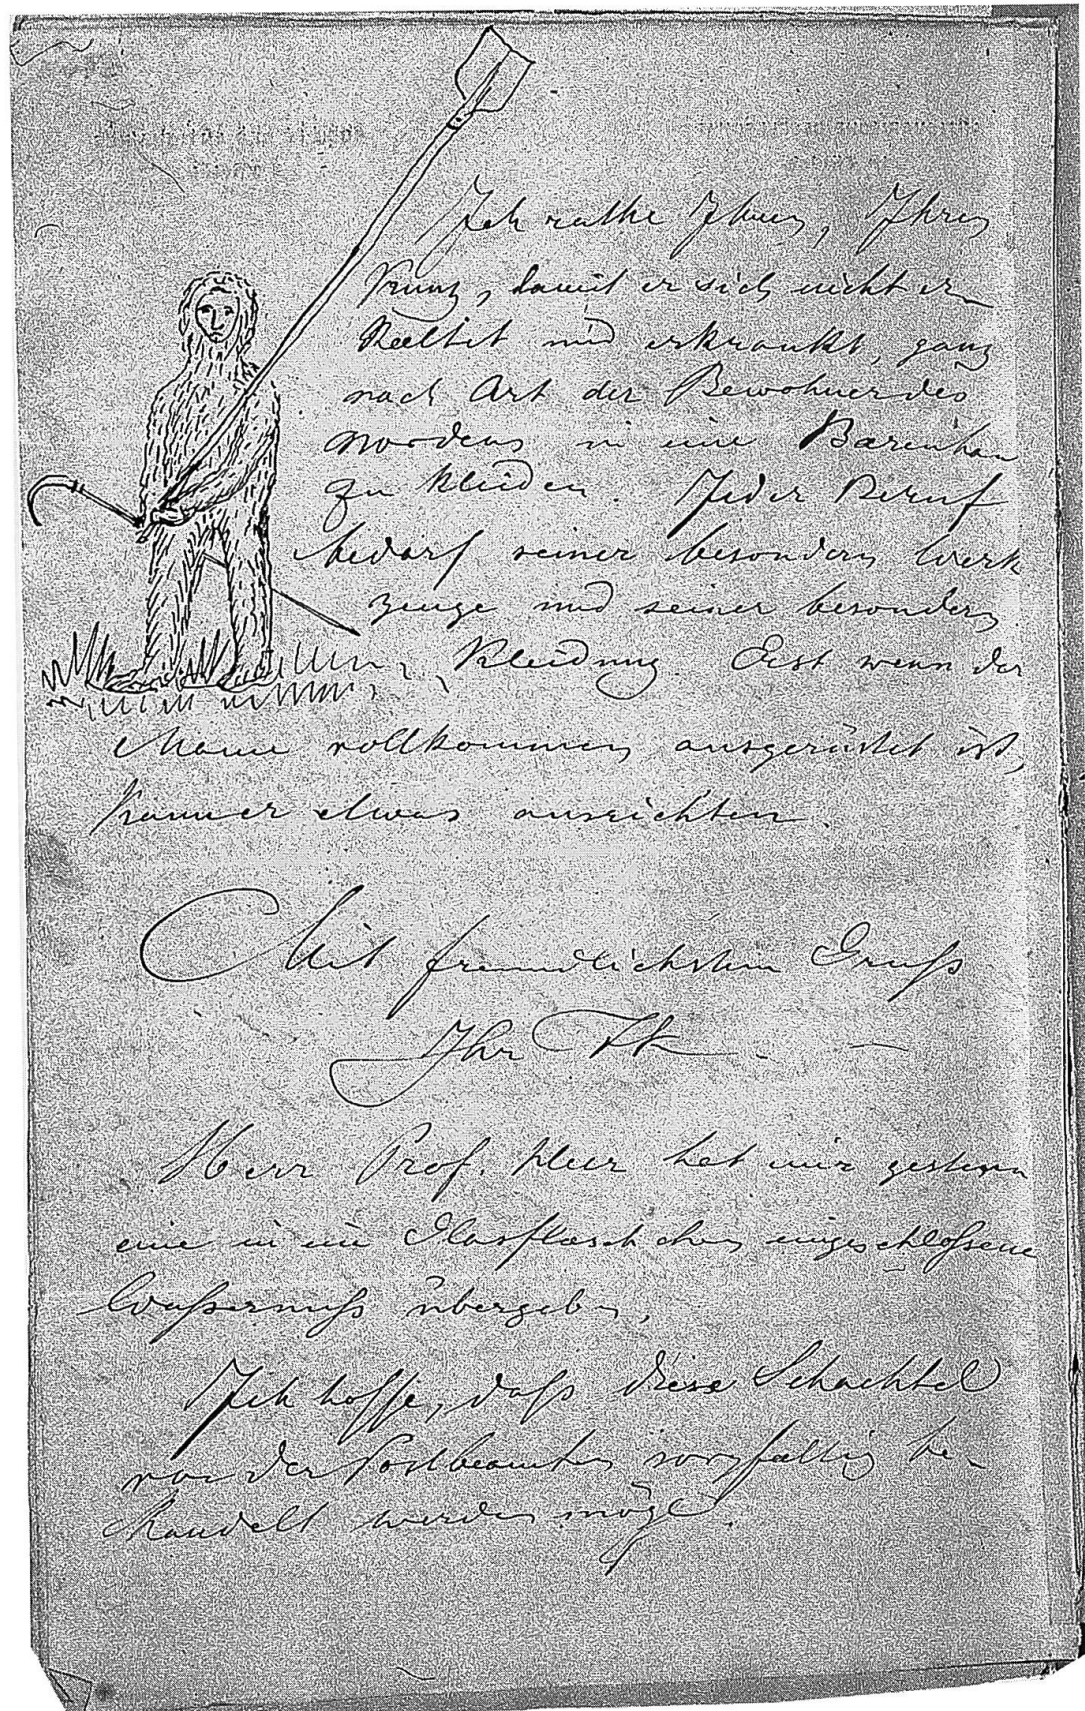 Ich rathe Ihnen, Ihren
Kunz, damit er sich nicht er-
kaeltet und erkrankt, ganz
nach Art der Bewohner des
Nordens in eine Bärenhaut
zu kleiden. Jeder Beruf
bedarf seiner besondern Werk
zeuge und seiner besondern
Kleidung. Erst wenn der
Mann vollkommen ausgerüstet ist,
kann er etwas ausrichten.
Mit freundlichstem Gruß
Ihr
Herr Prof. Heer hat mir gestern
eine in ein Glasfläschchen eingeschloßene
Waßernuß übergeben,
Ich hoffe, daß diese Schachtel
von der Postbeamten sorgfaeltig be-
handelt werden möge.